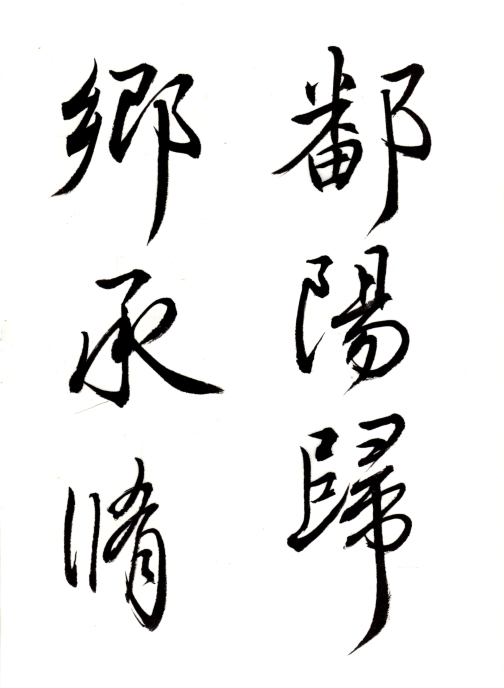 鄱陽歸
鄉承脩